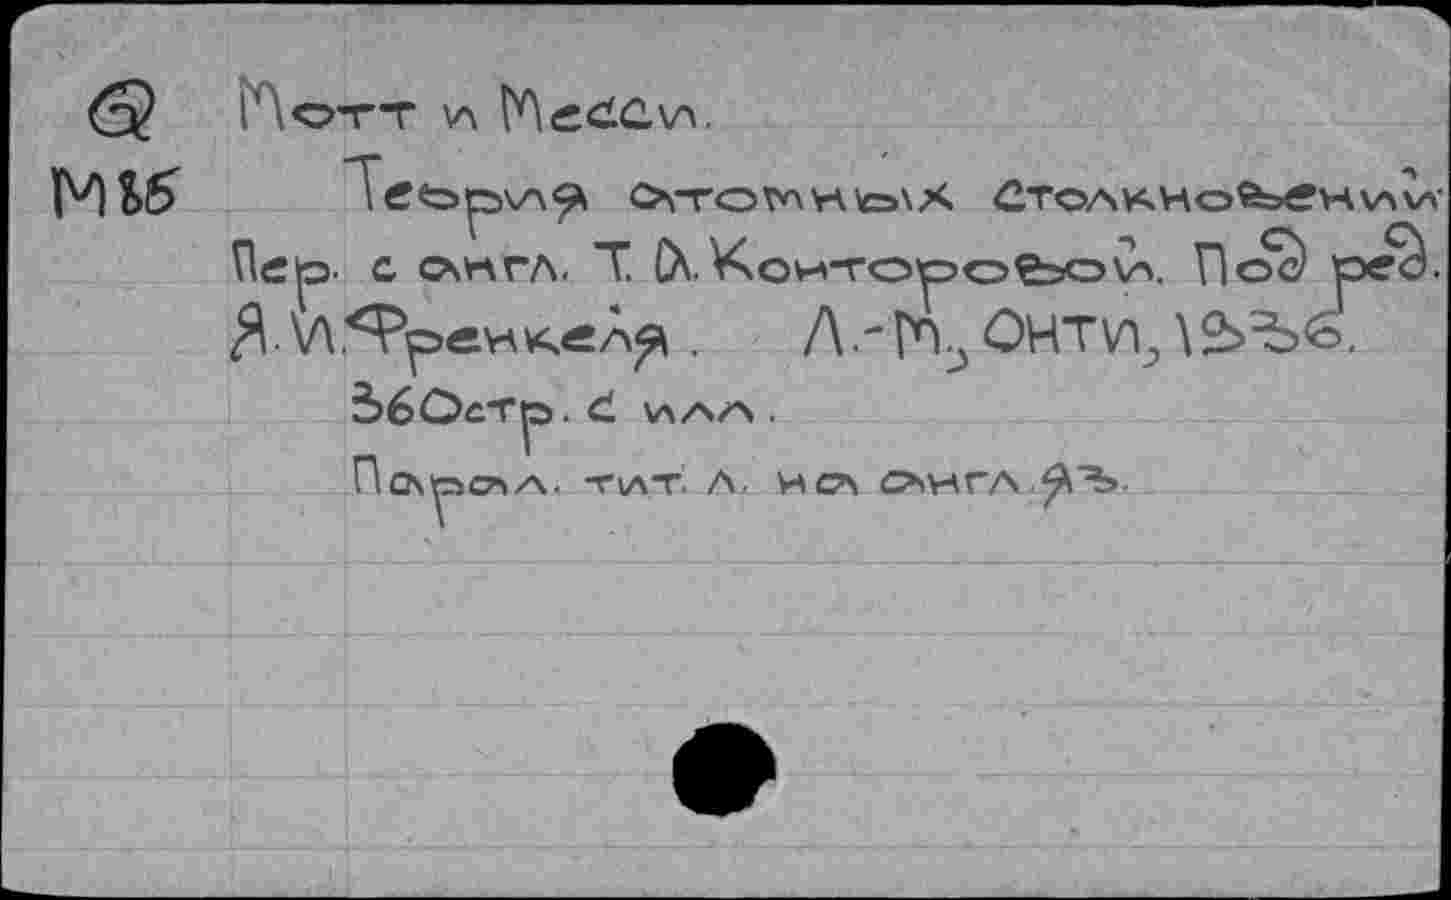 Мотт и Месси.
М86
Теория атомных столкновений.
Пер. с англ. Т. А. Конторовой. Под ред.
Я. И. Френкеля. Л.-М., ОНТИ, 1936.
360стр. с илл.
Парал. тит. л. на англ. яз.